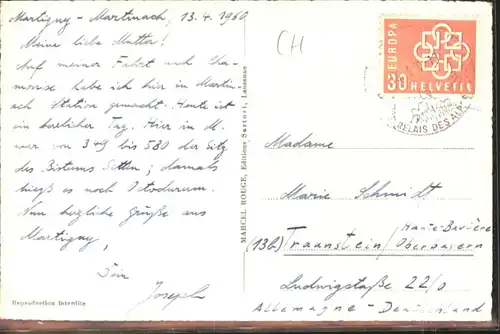 Martigny - Martinach, 13.4.1960
Meine liebe Mutter!
Auf meiner Fahrt nach Cha-
monix habe ich hier in Martin-
ach Station gemacht. Heute ist
ein herrlicher Tag. Hier in M.
war von 349 bis 580 der Sitz
des Bistums Sitten; damals
hieß es noch Octodurum.
Nun herzliche Grüße aus
Martigny,
Dein
Joseph
Reproduction Interdite
MARCEL ROUGE, Editions Sartori, Lausanne
CH
EUROPA
30 HELVETIA
RELAIS DES
Madame
Marie Schmidt
(13b) Traunstein/
Haute-Bavière
Oberbayern
Ludwigstraße 22/0
Allemagne - Deutschland